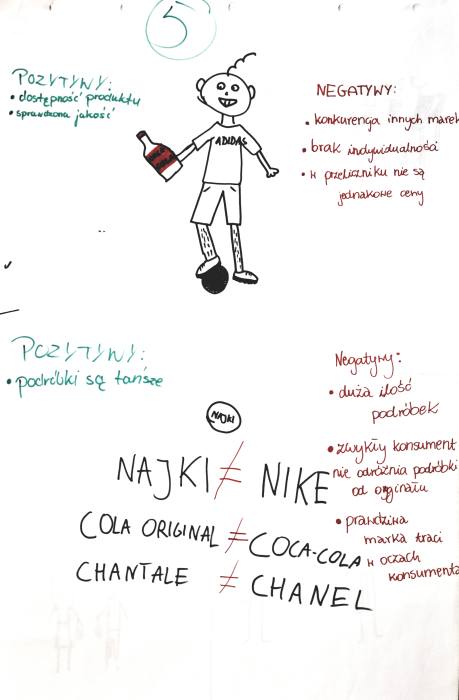 5
POZYTYWY:
• dostępność produktu
• sprawdzona jakość
NEGATYWY:
• konkurencja innych marek
• brak indywidualności
• w przeliczniku nie są
jednakowe ceny
ADIDAS
POZYTYWY:
• podróbki są tańsze
Negatywy:
• duża ilość
podróbek
• zwykły konsument
nie odróżnia podróbki
od orginału
• prawdziwa
marka traci
w oczach
konsumenta
NAJKI
NAJKI ≠ NIKE
COLA ORIGINAL ≠ COCA-COLA
CHANTALE ≠ CHANEL